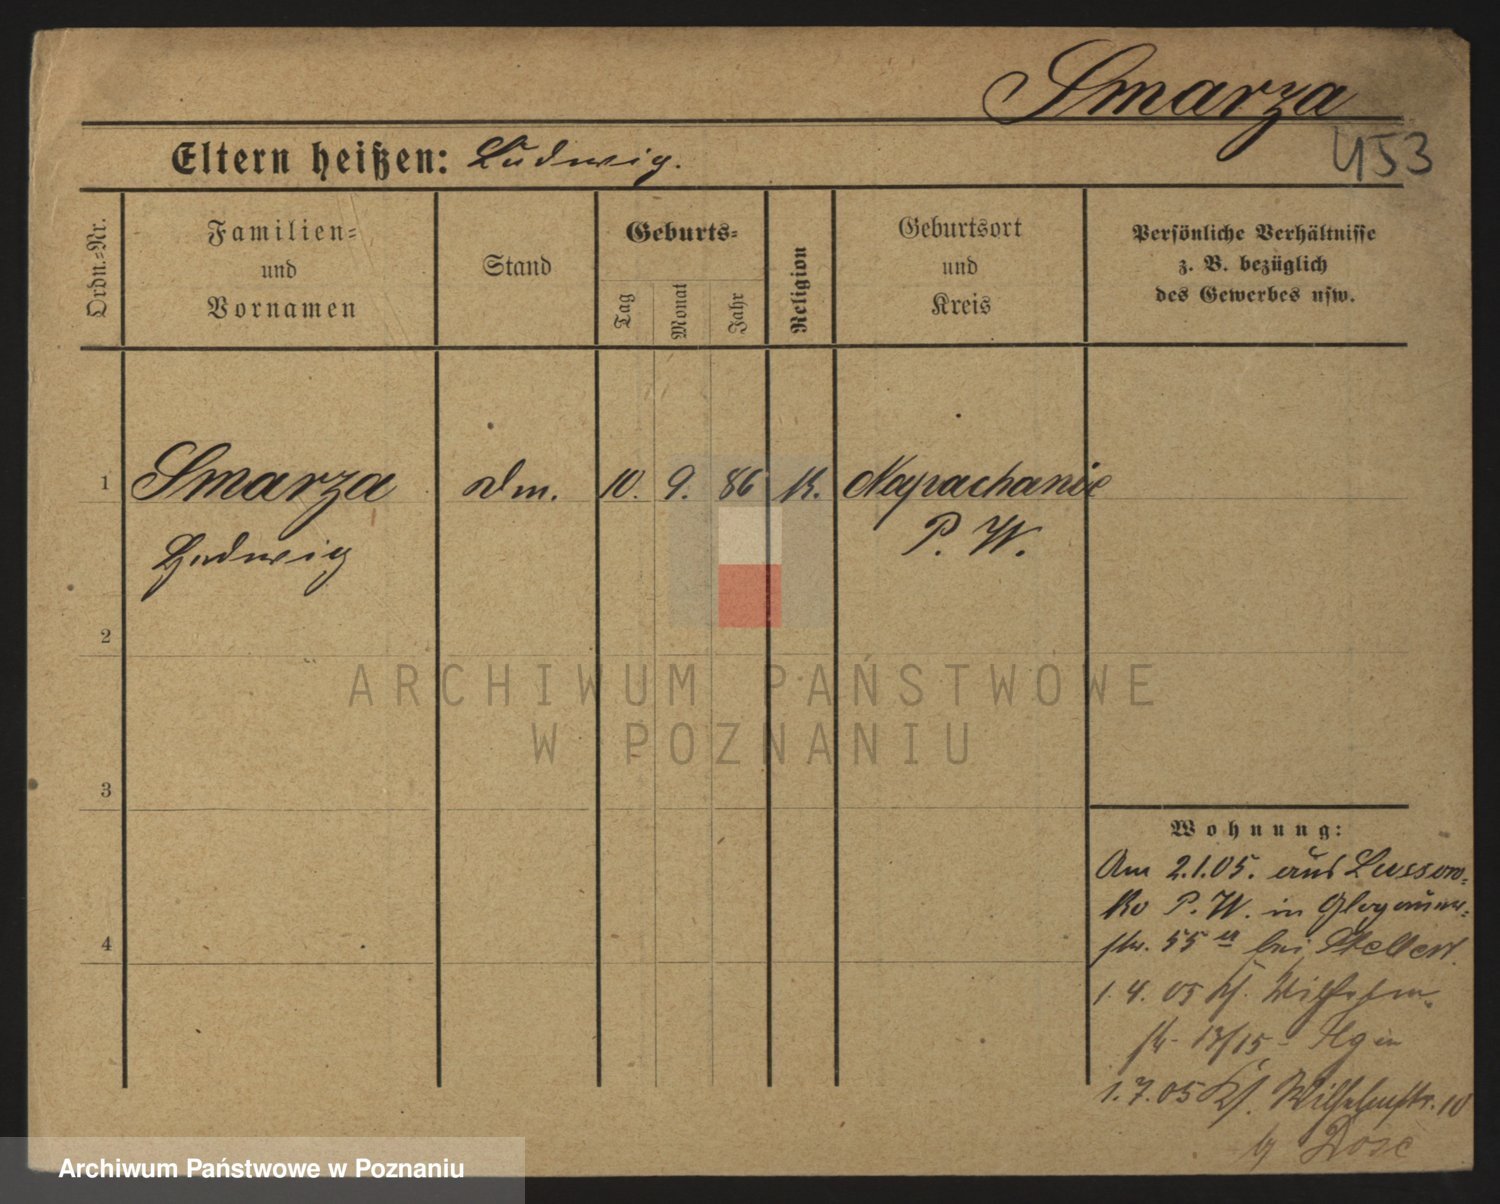 Smarza
453
Eltern heißen: Ludwig.
Ordn.=Nr.
Familien=
und
Vornamen
Stand
Geburts=
Tag
Monat
Jahr
Religion
Geburtsort
und
Kreis
Persönliche Verhältnisse
z. B. bezüglich
des Gewerbes usw.
1 Smarza 10. 9. 86 K. Napachanie
Ludwig P. W.
2
3
4
Wohnung:
Am 2.1.05. aus Lussow=
ko P. W. in Glogauer=
str. 55 bei
1. 4. 05 Wilhelm=
str. 15
1.7.05 Wilhelmstr. 10
ARCHIWUM PAŃSTWOWE
W POZNANIU
Archiwum Państwowe w Poznaniu